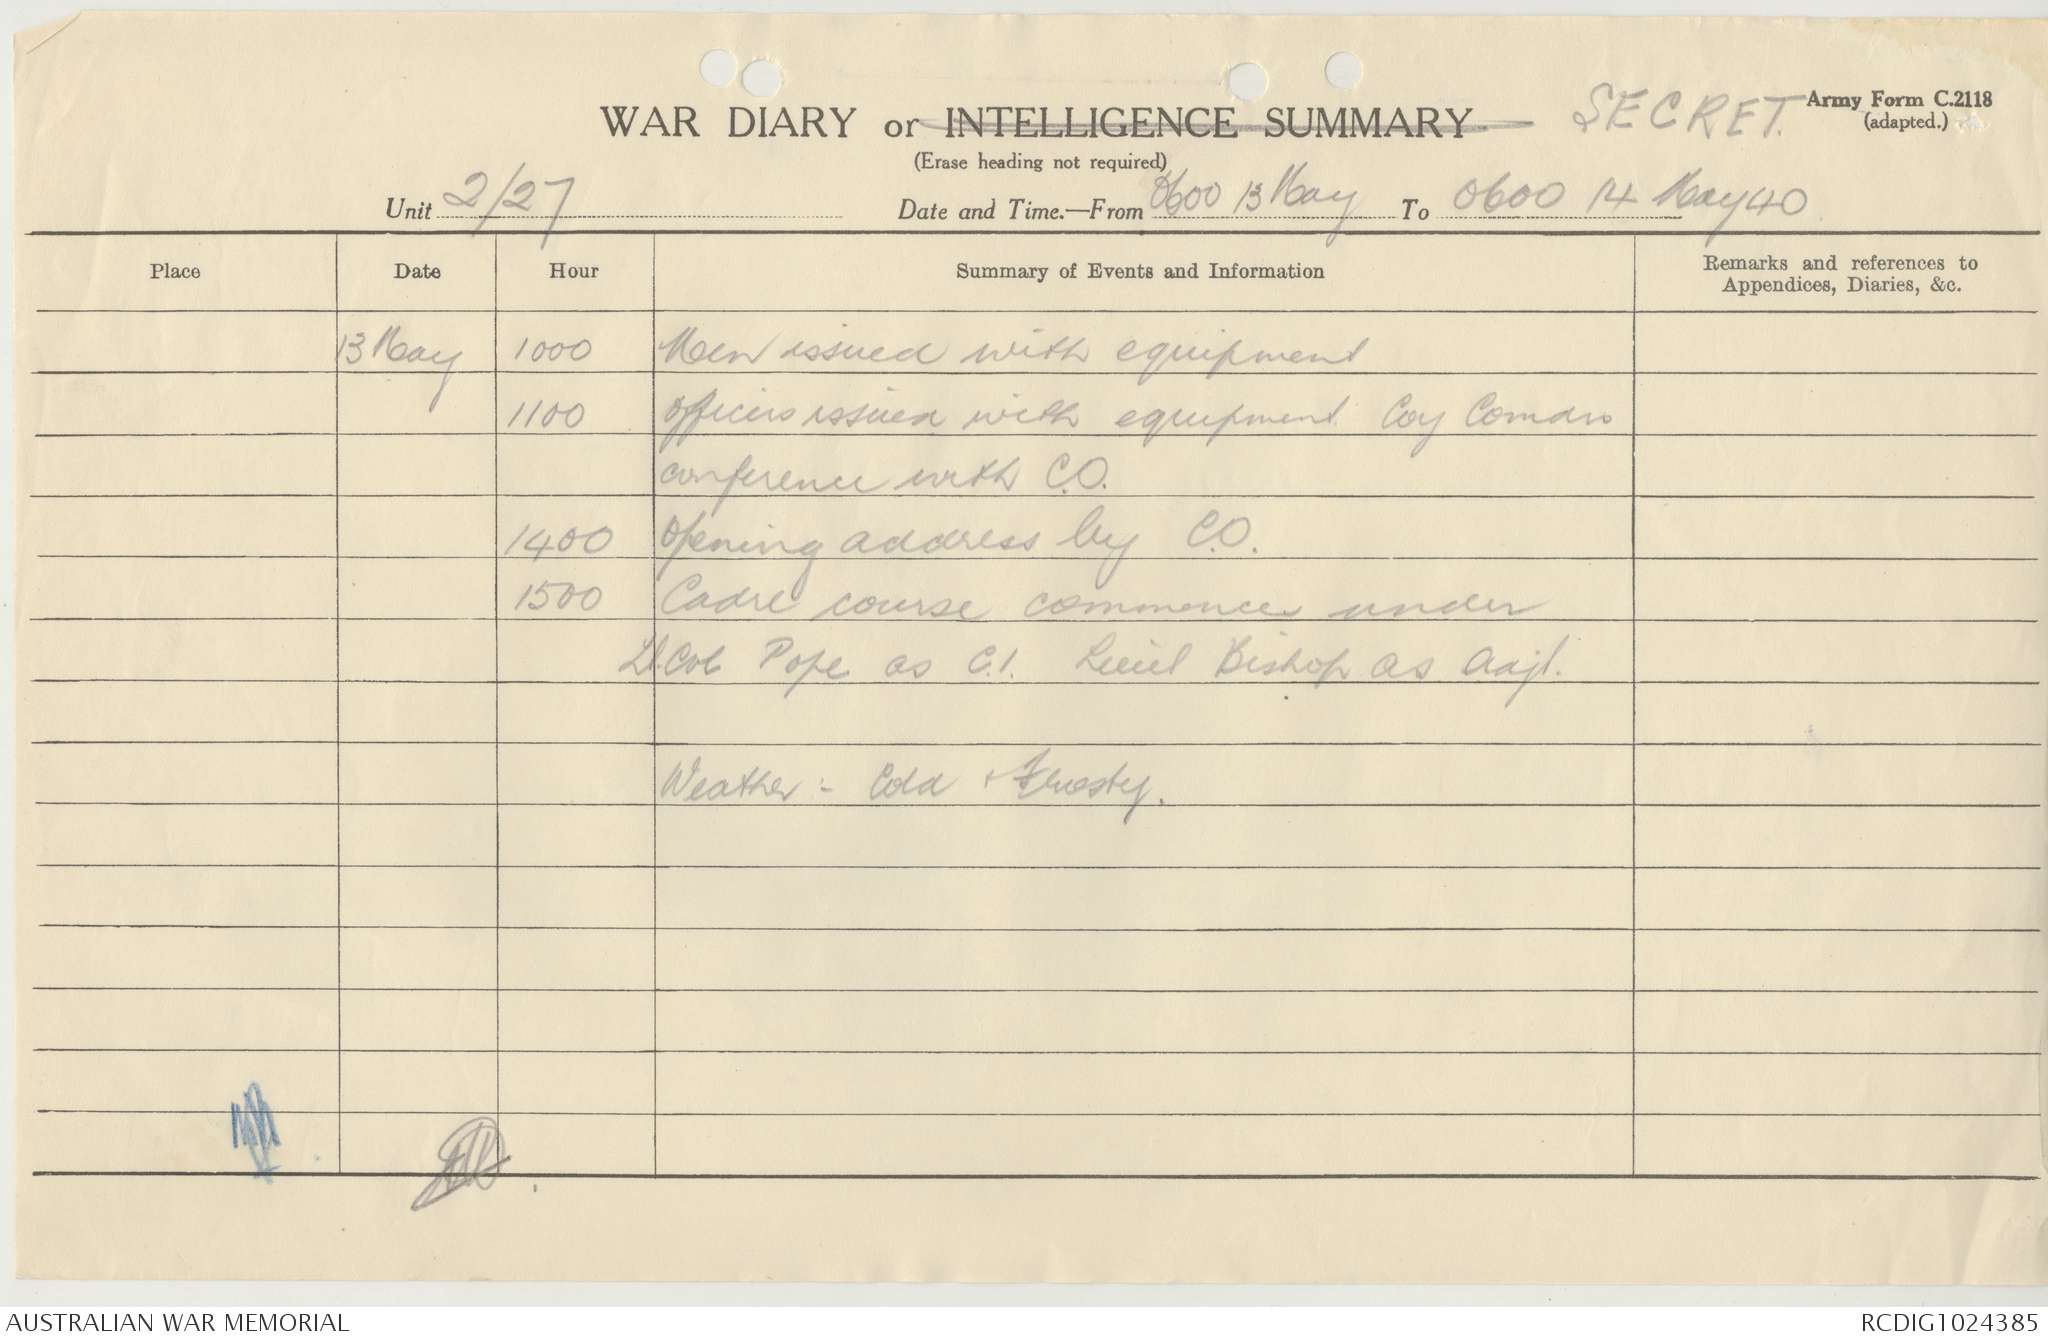 SECRET. Army Form C.2118
(adapted.)
WAR DIARY or INTELLIGENCE SUMMARY
(Erase heading not required)
Unit 2/27 Date and Time.—From 0600 13 May To 0600 14 May 40
Place Date Hour Summary of Events and Information Remarks and references to Appendices, Diaries, &c.
13 May 1000 Men issued with equipment
1100 Officers issued with equipment. Coy Comdrs
conference with C.O.
1400 Opening address by C.O.
1500 Cadre course commences under
Lt. Col Pope as C.I. Lieut Bishop as Adjt.
Weather :- Cold + Frosty.
AUSTRALIAN WAR MEMORIAL RCDIG1024385